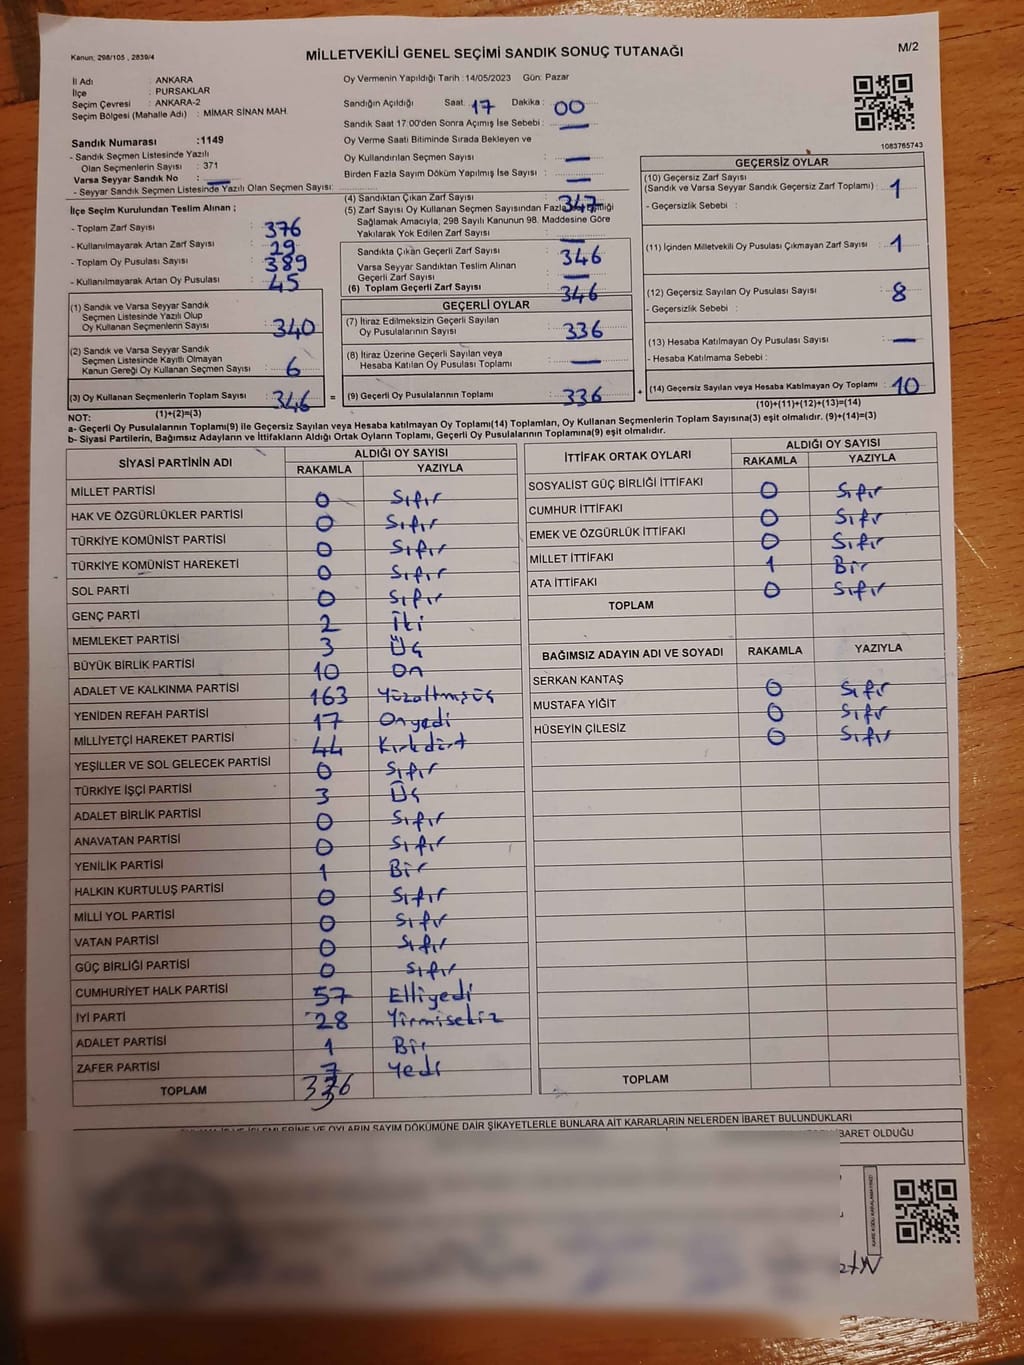 Kanun; 298/105 , 2839/4
MİLLETVEKİLİ GENEL SEÇİMİ SANDIK SONUÇ TUTANAĞI
M/2
İl Adı : ANKARA
İlçe : PURSAKLAR
Seçim Çevresi : ANKARA-2
Seçim Bölgesi (Mahalle Adı) : MİMAR SİNAN MAH.
Oy Vermenin Yapıldığı Tarih : 14/05/2023 Gün: Pazar
Sandığın Açıldığı Saat : 17 Dakika : 00
Sandık Saat 17:00'den Sonra Açımış İse Sebebi : —
Oy Verme Saati Bitiminde Sırada Bekleyen ve
Oy Kullandırılan Seçmen Sayısı : —
Birden Fazla Sayım Döküm Yapılmış İse Sayısı : —
1083765743
Sandık Numarası :1149
- Sandık Seçmen Listesinde Yazılı
Olan Seçmenlerin Sayısı : 371
Varsa Seyyar Sandık No : —
- Seyyar Sandık Seçmen Listesinde Yazılı Olan Seçmen Sayısı:
İlçe Seçim Kurulundan Teslim Alınan ;
- Toplam Zarf Sayısı : 376
- Kullanılmayarak Artan Zarf Sayısı : 29
- Toplam Oy Pusulası Sayısı : 389
- Kullanılmayarak Artan Oy Pusulası : 45
(1) Sandık ve Varsa Seyyar Sandık
Seçmen Listesinde Yazılı Olup
Oy Kullanan Seçmenlerin Sayısı : 340
(2) Sandık ve Varsa Seyyar Sandık
Seçmen Listesinde Kayıtlı Olmayan
Kanun Gereği Oy Kullanan Seçmen Sayısı : 6
(3) Oy Kullanan Seçmenlerin Toplam Sayısı : 346 =
(1)+(2)=(3)
(4) Sandıktan Çıkan Zarf Sayısı : 347
(5) Zarf Sayısı Oy Kullanan Seçmen Sayısından Fazla
Sağlamak Amacıyla, 298 Sayılı Kanunun 98. Maddesine Göre
Yakılarak Yok Edilen Zarf Sayısı : —
Sandıkta Çıkan Geçerli Zarf Sayısı : 346
Varsa Seyyar Sandıktan Teslim Alınan
Geçerli Zarf Sayısı : —
(6) Toplam Geçerli Zarf Sayısı : 346
GEÇERLİ OYLAR
(7) İtiraz Edilmeksizin Geçerli Sayılan
Oy Pusulalarının Sayısı : 336
(8) İtiraz Üzerine Geçerli Sayılan veya
Hesaba Katılan Oy Pusulası Toplamı : —
(9) Geçerli Oy Pusulalarının Toplamı : 336 +
GEÇERSİZ OYLAR
(10) Geçersiz Zarf Sayısı
(Sandık ve Varsa Seyyar Sandık Geçersiz Zarf Toplamı) : 1
- Geçersizlik Sebebi :
(11) İçinden Milletvekili Oy Pusulası Çıkmayan Zarf Sayısı : 1
(12) Geçersiz Sayılan Oy Pusulası Sayısı : 8
- Geçersizlik Sebebi :
(13) Hesaba Katılmayan Oy Pusulası Sayısı : —
- Hesaba Katılmama Sebebi :
(14) Geçersiz Sayılan veya Hesaba Katılmayan Oy Toplamı : 10
(10)+(11)+(12)+(13)=(14)
NOT:
a- Geçerli Oy Pusulalarının Toplamı(9) ile Geçersiz Sayılan veya Hesaba katılmayan Oy Toplamı(14) Toplamları, Oy Kullanan Seçmenlerin Toplam Sayısına(3) eşit olmalıdır. (9)+(14)=(3)
b- Siyasi Partilerin, Bağımsız Adayların ve İttifakların Aldığı Ortak Oyların Toplamı, Geçerli Oy Pusulalarının Toplamına(9) eşit olmalıdır.
SİYASİ PARTİNİN ADI ALDIĞI OY SAYISI
RAKAMLA YAZIYLA
MİLLET PARTİSİ 0 Sıfır
HAK VE ÖZGÜRLÜKLER PARTİSİ 0 Sıfır
TÜRKİYE KOMÜNİST PARTİSİ 0 Sıfır
TÜRKİYE KOMÜNİST HAREKETİ 0 Sıfır
SOL PARTİ 0 Sıfır
GENÇ PARTİ 2 İki
MEMLEKET PARTİSİ 3 Üç
BÜYÜK BİRLİK PARTİSİ 10 On
ADALET VE KALKINMA PARTİSİ 163 Yüzaltmışüç
YENİDEN REFAH PARTİSİ 17 Onyedi
MİLLİYETÇİ HAREKET PARTİSİ 44 Kırkdört
YEŞİLLER VE SOL GELECEK PARTİSİ 0 Sıfır
TÜRKİYE İŞÇİ PARTİSİ 3 Üç
ADALET BİRLİK PARTİSİ 0 Sıfır
ANAVATAN PARTİSİ 0 Sıfır
YENİLİK PARTİSİ 1 Bir
HALKIN KURTULUŞ PARTİSİ 0 Sıfır
MİLLİ YOL PARTİSİ 0 Sıfır
VATAN PARTİSİ 0 Sıfır
GÜÇ BİRLİĞİ PARTİSİ 0 Sıfır
CUMHURİYET HALK PARTİSİ 57 Elliyedi
İYİ PARTİ 28 Yirmisekiz
ADALET PARTİSİ 1 Bir
ZAFER PARTİSİ 7 Yedi
TOPLAM 336
İTTİFAK ORTAK OYLARI ALDIĞI OY SAYISI
RAKAMLA YAZIYLA
SOSYALİST GÜÇ BİRLİĞİ İTTİFAKI 0 Sıfır
CUMHUR İTTİFAKI 0 Sıfır
EMEK VE ÖZGÜRLÜK İTTİFAKI 0 Sıfır
MİLLET İTTİFAKI 1 Bir
ATA İTTİFAKI 0 Sıfır
TOPLAM
BAĞIMSIZ ADAYIN ADI VE SOYADI RAKAMLA YAZIYLA
SERKAN KANTAŞ 0 Sıfır
MUSTAFA YİĞİT 0 Sıfır
HÜSEYİN ÇİLESİZ 0 Sıfır
TOPLAM
İŞLEMLERİNE VE OYLARIN SAYIM DÖKÜMÜNE DAİR ŞİKAYETLERLE BUNLARA AİT KARARLARIN NELERDEN İBARET BULUNDUKLARI
İBARET OLDUĞU
KARE KODU KARALAMAYINIZ!